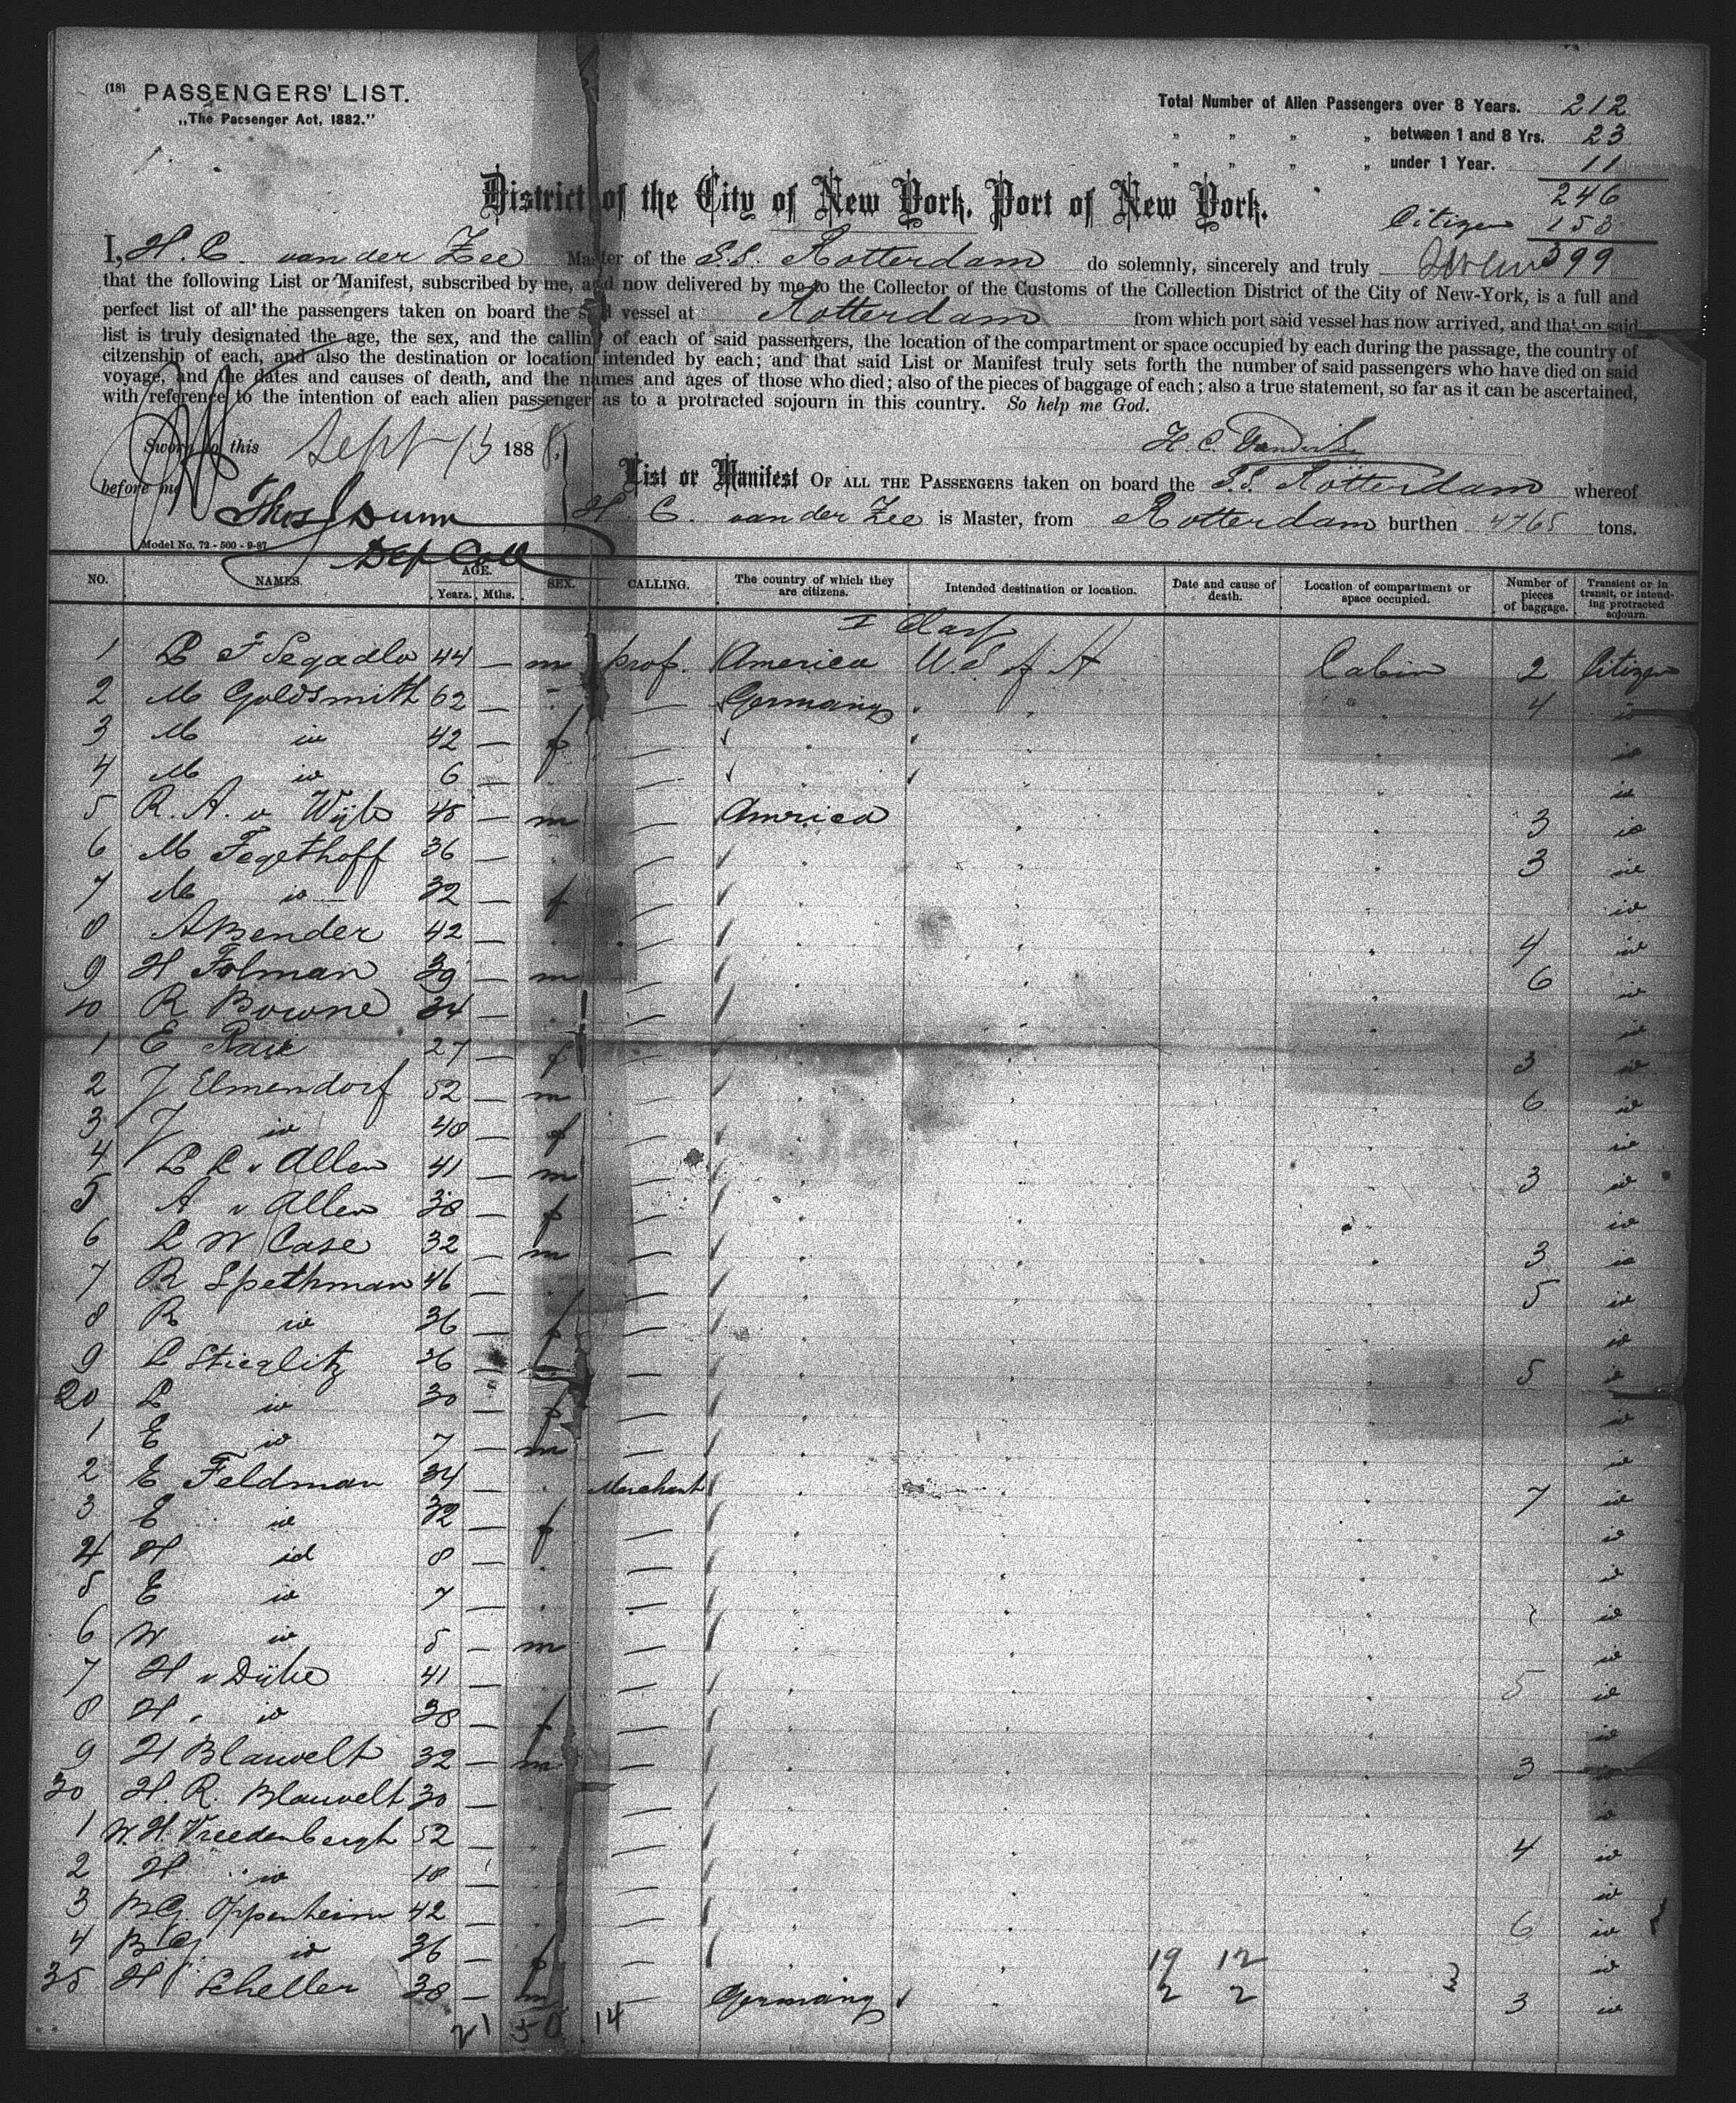 (18) PASSENGERS' LIST.
„The Pacsenger Act, 1882."
Total Number of Alien Passengers over 8 Years. 212
„ „ „ „ between 1 and 8 Yrs. 23
„ „ „ „ under 1 Year. 11
246
District of the City of New York, Port of New York.
Citizen 153
399
I, H. C. van der Zee Master of the S.S. Rotterdam do solemnly, sincerely and truly
that the following List or Manifest, subscribed by me, and now delivered by me to the Collector of the Customs of the Collection District of the City of New-York, is a full and
perfect list of all the passengers taken on board the said vessel at Rotterdam from which port said vessel has now arrived, and that on said
list is truly designated the age, the sex, and the calling of each of said passengers, the location of the compartment or space occupied by each during the passage, the country of
citzenship of each, and also the destination or location intended by each; and that said List or Manifest truly sets forth the number of said passengers who have died on said
voyage, and the dates and causes of death, and the names and ages of those who died; also of the pieces of baggage of each; also a true statement, so far as it can be ascertained,
with reference to the intention of each alien passenger as to a protracted sojourn in this country. So help me God.
Sworn to this Sept 13 1888
H. C. Vanderzee
before me
Thos J Dunn
Dep Coll
List or Manifest OF ALL THE PASSENGERS taken on board the S.S. Rotterdam whereof
H C. van der Zee is Master, from Rotterdam burthen 4765 tons.
Model No. 72 - 500 - 9-87
NO. NAMES. AGE. Years. Mths. SEX. CALLING. The country of which they are citizens. Intended destination or location. Date and cause of death. Location of compartment or space occupied. Number of pieces of baggage. Transient or in transit, or intending protracted sojourn.
I Class
1 L F Segadlo 44 — m prof. America U.S. of A Cabin 2 Citizen
2 M Goldsmith 62 — — Germany 4 io
3 M io 42 — f — io
4 M io 6 — io
5 R. A. v Wijk 48 — m — America 3 io
6 M Tegethoff 36 — — 3 io
7 M io 32 — f — io
8 A Bender 42 — — 4 io
9 H Folman 39 — m — 6 io
10 R Bowne 34 — — io
1 E Raie 27 — f — 3 io
2 J Elmendorf 52 — m — 6 io
3 J io 48 — f — io
4 L L v Allen 41 — m — 3 io
5 A v Allen 38 — f — io
6 L W Case 32 — m — 3 io
7 R Spethman 46 — — 5 io
8 R io 36 — f — io
9 L Stieglitz 36 — — 5 io
20 L io 30 — f — io
1 E io 7 — m — io
2 E Feldman 34 — Merchant 7 io
3 E io 32 — f — io
4 H id 8 — — io
5 E io 7 — — io
6 W io 5 — m — io
7 H v Dijke 41 — — 5 io
8 H. io 38 — f — io
9 H Blauvelt 32 — m — 3 io
30 H. R. Blauvelt 30 — — io
1 W. H. Vreedenbergh 52 — — 4 io
2 H io 18 — — io
3 B.G. Oppenheim 42 — — 6 io
4 B G. io 36 — f — 19 12 io
35 H Scheller 38 — m — Germany 2 2 3 io
21 50 14